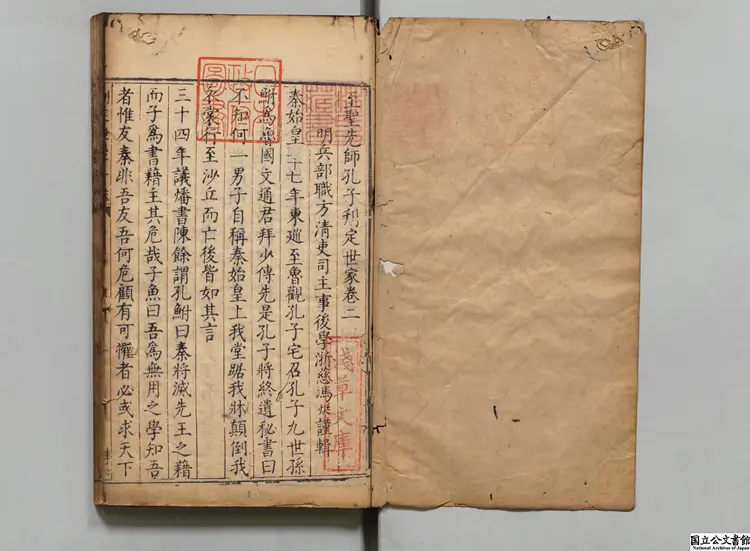 至聖先師孔子刋定世家卷二
明兵部職方清吏司主事後學浙慈馮烶謹輯
秦始皇三十七年東廵至魯觀孔子宅召孔子九世孫
鮒爲魯國文通君拜少傅先是孔子將終遺秘書曰
不知何一男子自稱秦始皇上我堂踞我牀顛倒我
衣裳行至沙丘而亡後皆如其言
三十四年議燔書陳餘謂孔鮒曰秦將滅先王之藉
而子爲書籍主其危哉子魚曰吾爲無用之學知吾
者惟友秦非吾友吾何危顧有可懼者必或求天下
淺草文庫
日本政府圖書
国立公文書館
National Archives of Japan